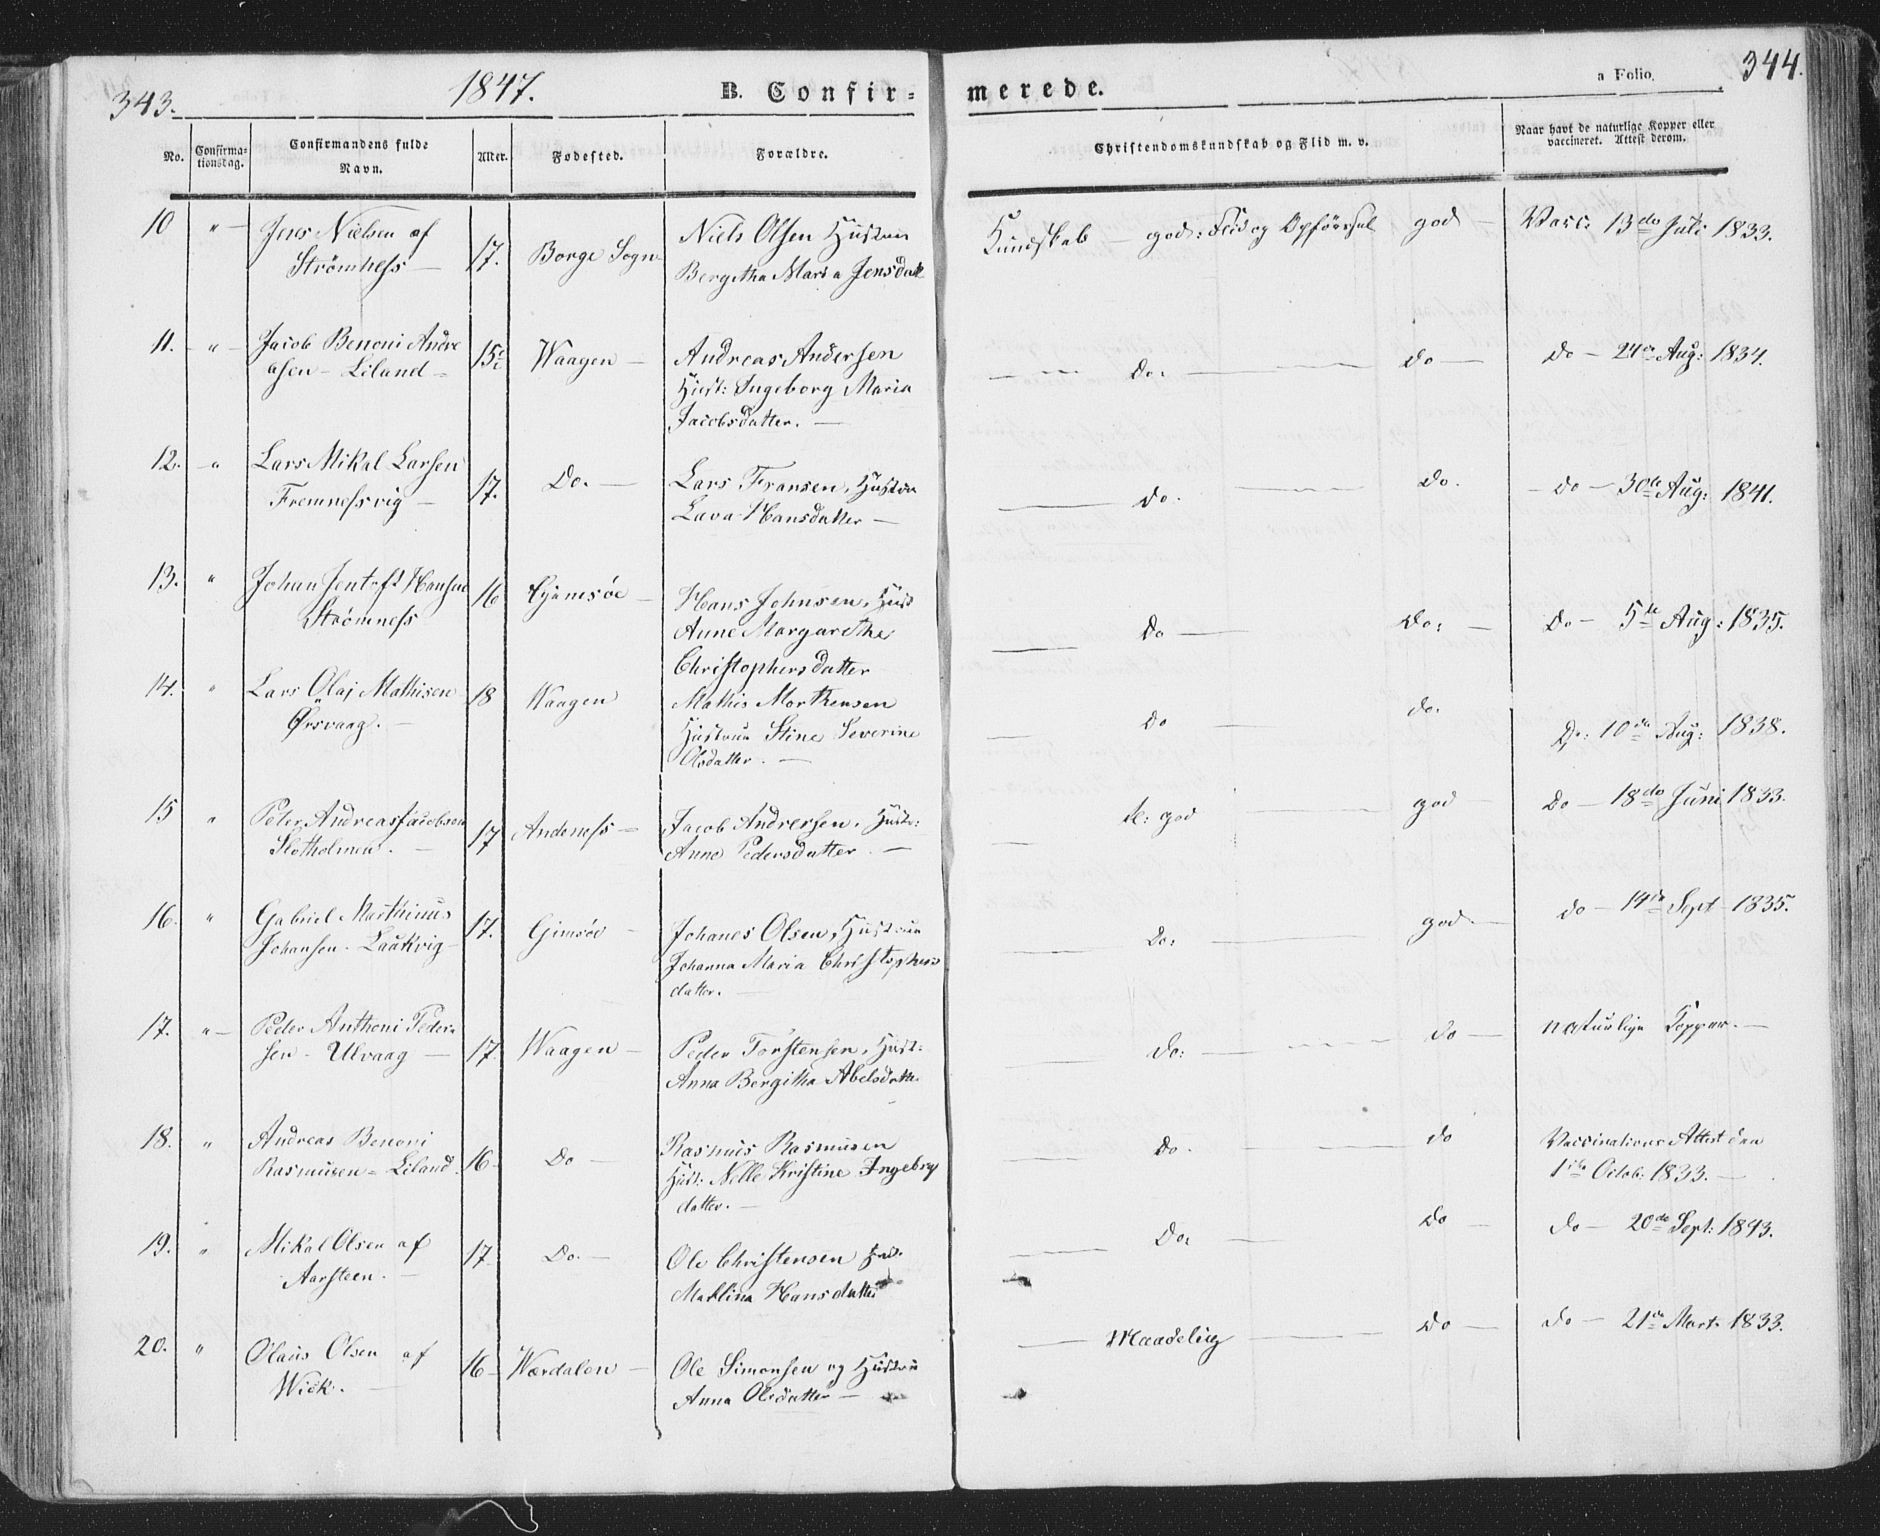 343.
1847.
B. Confir-
merede.
a Folio.
344.
No.
Confirma-
tionsdag.
Confirmandens fulde
Navn.
Alter.
Fødested.
Forældre.
Christendomskundskab og Flid m. v.
Naar havt de naturlige Kopper eller
vaccineret. Attest derom.
10 " — Jens Nielsen af
Strømness — 17. Borge Sogn
Niels Olsen Hustru
Bergitha Maria Jensdatt
Kundskab — god: Flid og Opførsel god — Vacc: 13de Juli 1833.
11. — " — Jacob Benoni Andre
asen — Liland — 15½ Waagen —
Andreas Andersen
Hust: Ingeborg Maria
Jacobsdatter. —
— Do: — Do — Do — 24de Aug: 1834.
12. — " Lars Mikal Larsen
Fremnessvig — 17. Do. —
Lars Fransen, Hustru
Lava Hansdatter —
— Do. — Do. — Do — 30te Aug: 1841.
13. " Johan Jentoft Hansen
Strømness 16 Gjemsøe —
Hans Johnsen, Hust
Anne Margarethe
Christophersdatter
— Do — Do: — Do — 5te Aug: 1835.
14. " Lars Olaj Mathisen
Ørsvaag. — 18 Waagen
Mathis Morthensen
Hustrue Stine Severine
Olsdatter. —
— Do — Do. Do: 10de Aug: 1838.
15 " Peter Andreas Jacobsen
Slotholmen. — 17 Andeness —
Jacob Andreasen, Hustr:
Anne Pedersdatter. —
— god — god — Do — 18de Juni 1833.
16. " Gabriel Marthinus
Johansen. Laukvig — 17. Gimsøe —
Johanes Olsen, Hustrue
Johanna Maria Christophers
datter. —
— Do: — god — do — 14de Sept 1835.
17. " — Peder Anthoni Peder-
sen — Ulvaag — 17. Waagen —
Peder Torstensen, Hust:
Anna Bergitha Abelsdatte
— Do: — Do — naturlige Kopper. —
18. " Andreas Benoni
Rasmusen — Liland. 16 — Do —
Rasmus Rasmusen
Hust: Nelle Kristine Ingebrg
datter. —
— Do. — Do Vaccinations Attest den
1ste Octob: 1833. —
19. " Mikal Olsen af
Aarsteen. — 17. Do. —
Ole Christensen Hus.
Maklina Hansdatter
— Do: — Do — Do — 20de Sept: 1843.
20. " Olaus Olsen af
Wiek. — 16 — Værdalen —
Ole Simonsen og Hustru
Anna Olsdatter —
— Maadelig — Do — Do — 21de Mart. 1833.